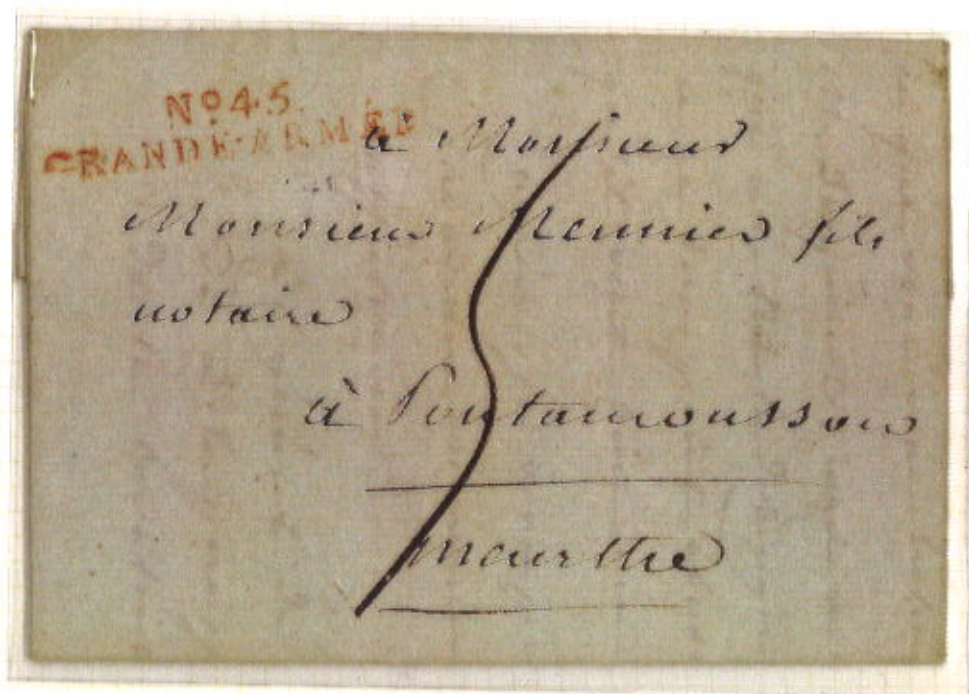 No 45.
GRANDE-ARMÉE
à Monsieur
Monsieur Mennier fils
notaire
à Pontamousson
meurthe